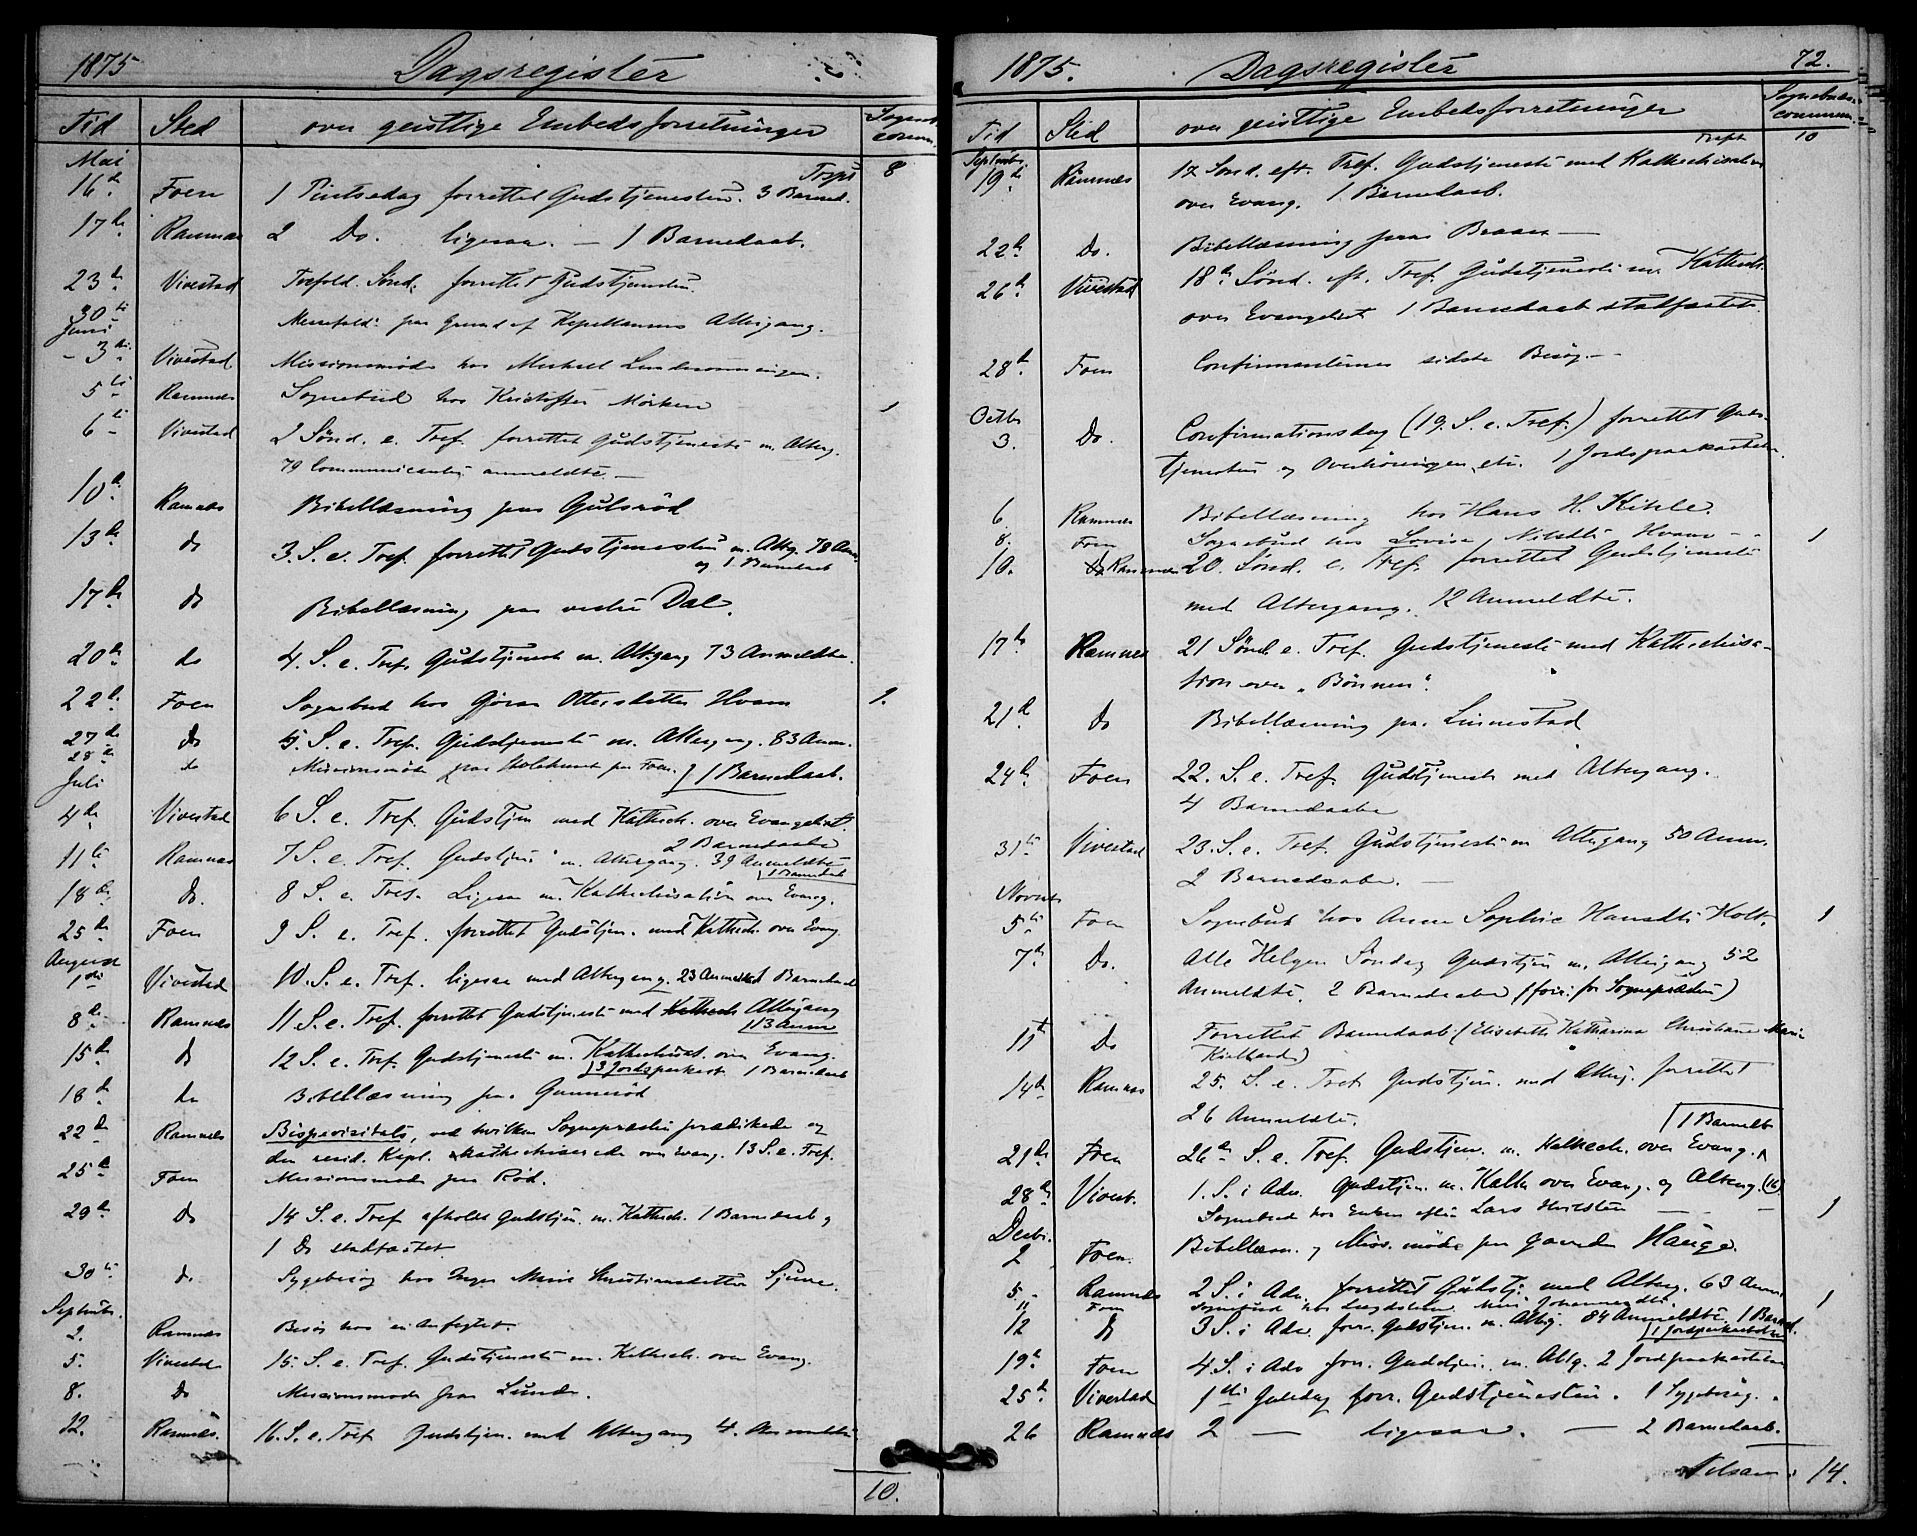 1875 Dagsregister
Tid Sted over geistlige Embedsforretninger Sogneb. comm.
Mai Trspt 8
16de Foen 1 Pintsedag forrettet Gudstjenesten. 3 Barned.
17de Ramnæs 2 Do. ligesaa. — 1 Barnedaab.
23de Vivestad Trefold. Sønd. forrettet Gudstjenesten.
30te Messefald: paa Grund af Kapellanens Altergang.
Juni
3die Vivestad Missionsmøde hos Michael
5te Ramnæs Sognebud hos Kristoffer Mørken 1
6te Vivestad 2 Sønd. e. Tref. forrettet Gudstjeneste m. Alterg.
79 Communicanter anmeldte. —
10de Ramnæs Bibellæsning paa Gulsrød
13de do 3. S. e. Tref. forrettet Gudstjenesten m. Altg. 78 Anm.
og 1 Barnedaab
17de do Bibellæsning paa vestre Dal.
20de do 4. S. e. Tref. Gudstjeneste m. Altgang 73 Anmeldte.
22de Foen Sognebud hos Gjøran Ottersdatter Hvam 1.
27de do 5. S. e. Tref. Gudstjeneste m. Altergang. 83 Anm.
28de do Missionsmøde paa Skolehuset paa Foen. 1 Barnedaab.
Juli
4de Vivestad 6 S. e. Tref. Gudstjen med Kathech. over Evangeliet.
2 Barnedaabe
11te Ramnæs 7 S. e. Tref. Gudstjen m. Altergang. 39 Anmeldte
1 Barnedaab
18de do. 8 S. e. Tref. Ligesaa m. Kathechisation over Evang.
25de Foen 9 S. e. Tref. forrettet Gudstjen. med Kathech. over Evang.
August
1ste Vivestad 10. S. e. Tref. ligesaa med Altergang. 23 Anmeldte 1 Barnedaab
8de Ramnæs 11 S. e. Tref. forrettet Gudstjeneste med Kathech Altergang
113 Anm
15de do 12 S. e. Tref. Gudstjeneste m. Kathechisat. over Evang.
3 Jordspaakast. 1 Barnedaab
18de do Bibellæsning paa Gunnerød.
22de Ramnæs Bispevisitats, ved hvilken Sognepræsten prædikede og
den resid. Kapl. kathechiserede over Evang. 13 S. e. Tref.
25de Foen Missionsmøde paa Rød.
29de do 14 S. e. Tref afholdt Gudstjen. m. Kathech. 1 Barnedaab og
1 Do stadfæstet
30te do Sygebesøg hos Inger Marie Christiansdatter
Septembr.
2. Ramnæs Besøg hos en Anfegtet.
5. Vivestad 15. S. e. Tref. Gudstjeneste m. Kathech. over Evang.
8. Do Missionsmøde paa Lunde.
12. Ramnæs. 16. S. e. Tref Gudstjen. med Altergang 4. Anmeldte
10.
1875. Dagsregister 72.
Tid Sted over geistlige Embedsforretninger Sognebuds-commun.
Septembr. Trspt 10
19de Ramnæs 17 Sønd. eft. Tref. Gudstjeneste med Kathechisation
over Evang. 1 Barnedaab.
22de Do. Bibellæsning paa Braaen —
26de Vivestad 18de Sønd. eft. Tref. Gudstjeneste m. Kathech.
over Evangeliet 1 Barnedaab stadfæstet.
28de Foen Confirmanternes sidste Besøg. —
Octbr
3. Do. Confirmationsdag (19. S. e. Tref.) forrettet Guds-
tjenesten og Overhøringen etc. 1 Jordspaakastelse.
6. Ramnæs Bibellæsning hos Hans H. Kihle.
8. Foen Sognebud hos Lovise Nilsdtr Hvam — 1
10. Ramnæs 20. Sønd. e. Tref. forrettet Gudstjeneste
med Altergang. 12 Anmeldte.
17de Ramnes 21 Sønd. e. Tref. Gudstjeneste med Kathechisa-
tion over „Bønnen“.
21de Do Bibellæsning paa Linnestad
24de Foen 22. S. e. Tref. Gudstjeneste med Altergang.
4 Barnedaabe
31te Vivestad 23. S. e. Tref. Gudstjeneste m Altergang 50 Anm.
2 Barnedaabe. —
Novmbr
5te Foen Sognebud hos Anne Sophie Hansdtr Holt. 1
7de Do. Alle Helgen Søndag Gudstjen m. Altergang 52
Anmeldte. 2 Barnedaabe (forr. for Sognepræsten)
11te Do Forrettet Barnedaab (Elisabeth Katharina Christiane Marie
Kielland)
14de Ramnæs 25. S. e. Tref. Gudstjen. med Alterg. forrettet
26 Anmeldte. 1 Barnedb
21de Foen 26de S. e. Tref. Gudstjen. m. Kathech. over Evang.
28de Vivest. 1. S. i Adv. Gudstjen. m. Kath. over Evang. og Alterg. (16)
Sognebud hos Enken efter Lars — — 1
Decbr.
2 Foen Bibellæsn. og Miss. møde paa gaarden Hauge.
5. Ramnæs 2 S. i Adv. forrettet Gudstj. med Alterg. 63 Anm.
11 Foen Sognebud hos Johannesdtr. 1
12 do 3 S. i Adv. forr. Gudstjen. m. Altg. 84 Anmeldte. 1 Barned.
1 Jordspaakastelse
19de Foen 4 S. i Adv forr. Gudstjen. m. Altg. 2 Jordspaakastelser
25de Vivestad 1ste Juledag forr. Gudstjenesten. 1 Sygebesøg.
26 Ramnæs 2 — ligesaa. — 2 Barnedaab.
Tilsam: 14.